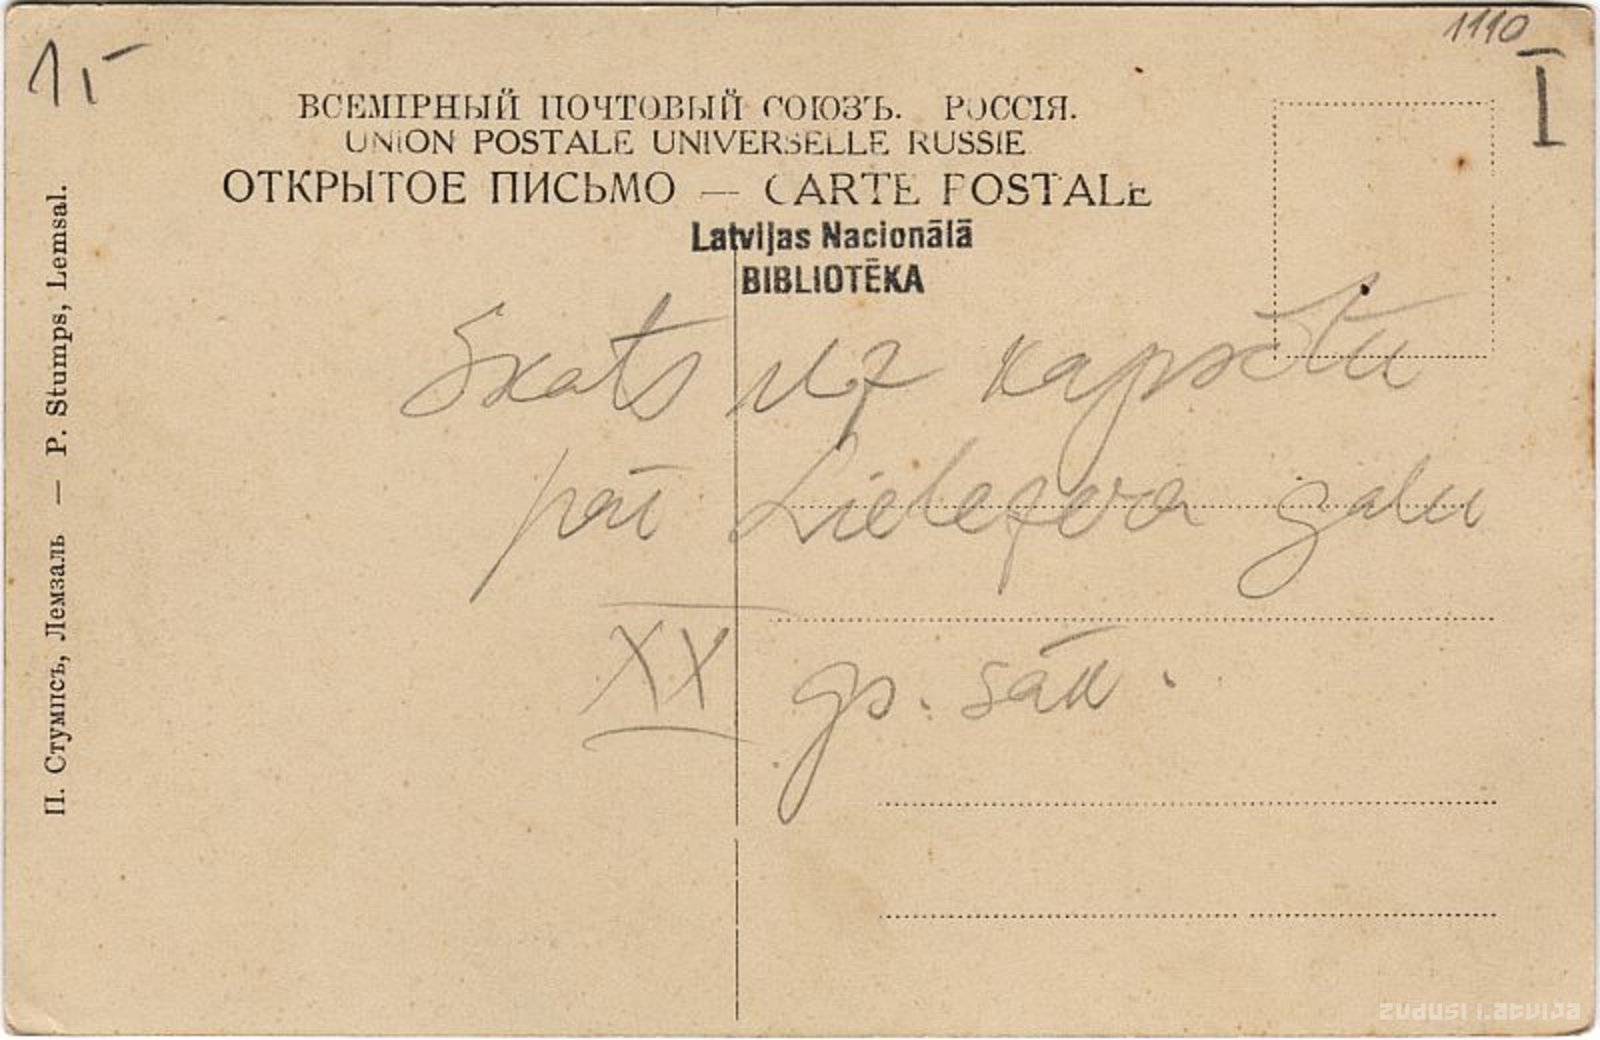 1,-
1110
I
ВСЕМІРНЫЙ ПОЧТОВЫЙ СОЮЗЪ. РОССІЯ.
UNION POSTALE UNIVERSELLE RUSSIE
ОТКРЫТОЕ ПИСЬМО — CARTE POSTALE
Latvijas Nacionālā
BIBLIOTĒKA
Skats uz
pār Lielezera galu
XX gs. sāk.
П. Стумпсъ, Лемзаль — P. Stumps, Lemsal.
zudusi Latvija